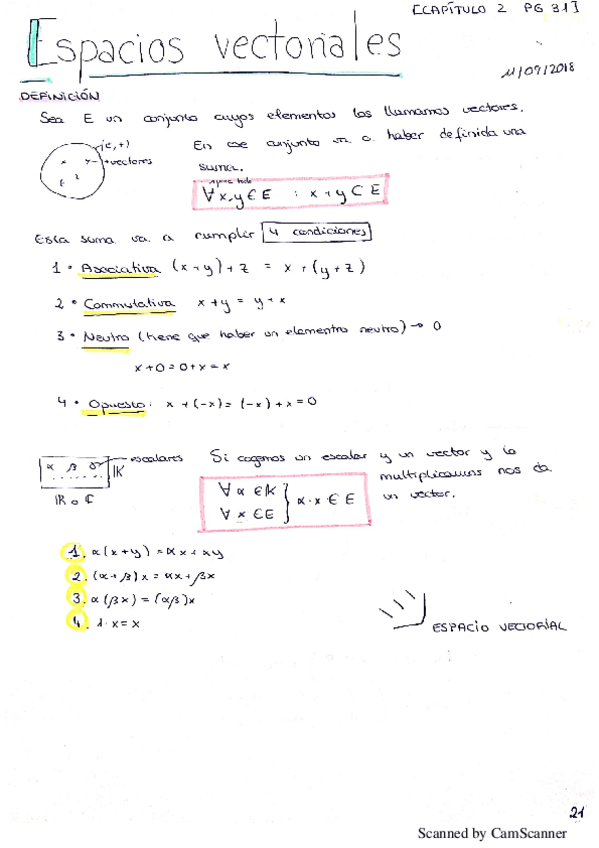 [CAPÍTULO 2 PG 31]
Espacios vectoriales
11/09/2018
DEFINICIÓN
Sea E un conjunto cuyos elementos los llamamos vectores.
(E, +)
vectores
En ese conjunto va a haber definida una
suma.
∀x,y ∈ E : x + y ∈ E
Esta suma va a cumplir 4 condiciones
1 • Asociativa (x+y)+z = x+(y+z)
2 • Conmutativa x+y = y+x
3 • Neutro (tiene que haber un elemento neutro) → 0
x+0=0+x=x
4 • Opuesto: x+(-x)=(-x)+x=0
α β γ
escalares
IK
IR o ℂ
Si cogemos un escalar y un vector y lo
multiplicamos nos da
un vector.
∀ α ∈ IK
∀ x ∈ E
} α·x ∈ E
1. α(x+y)=αx+αy
2. (α+β)x=αx+βx
3. α(βx)=(αβ)x
4. 1·x=x
ESPACIO VECTORIAL
21
Scanned by CamScanner